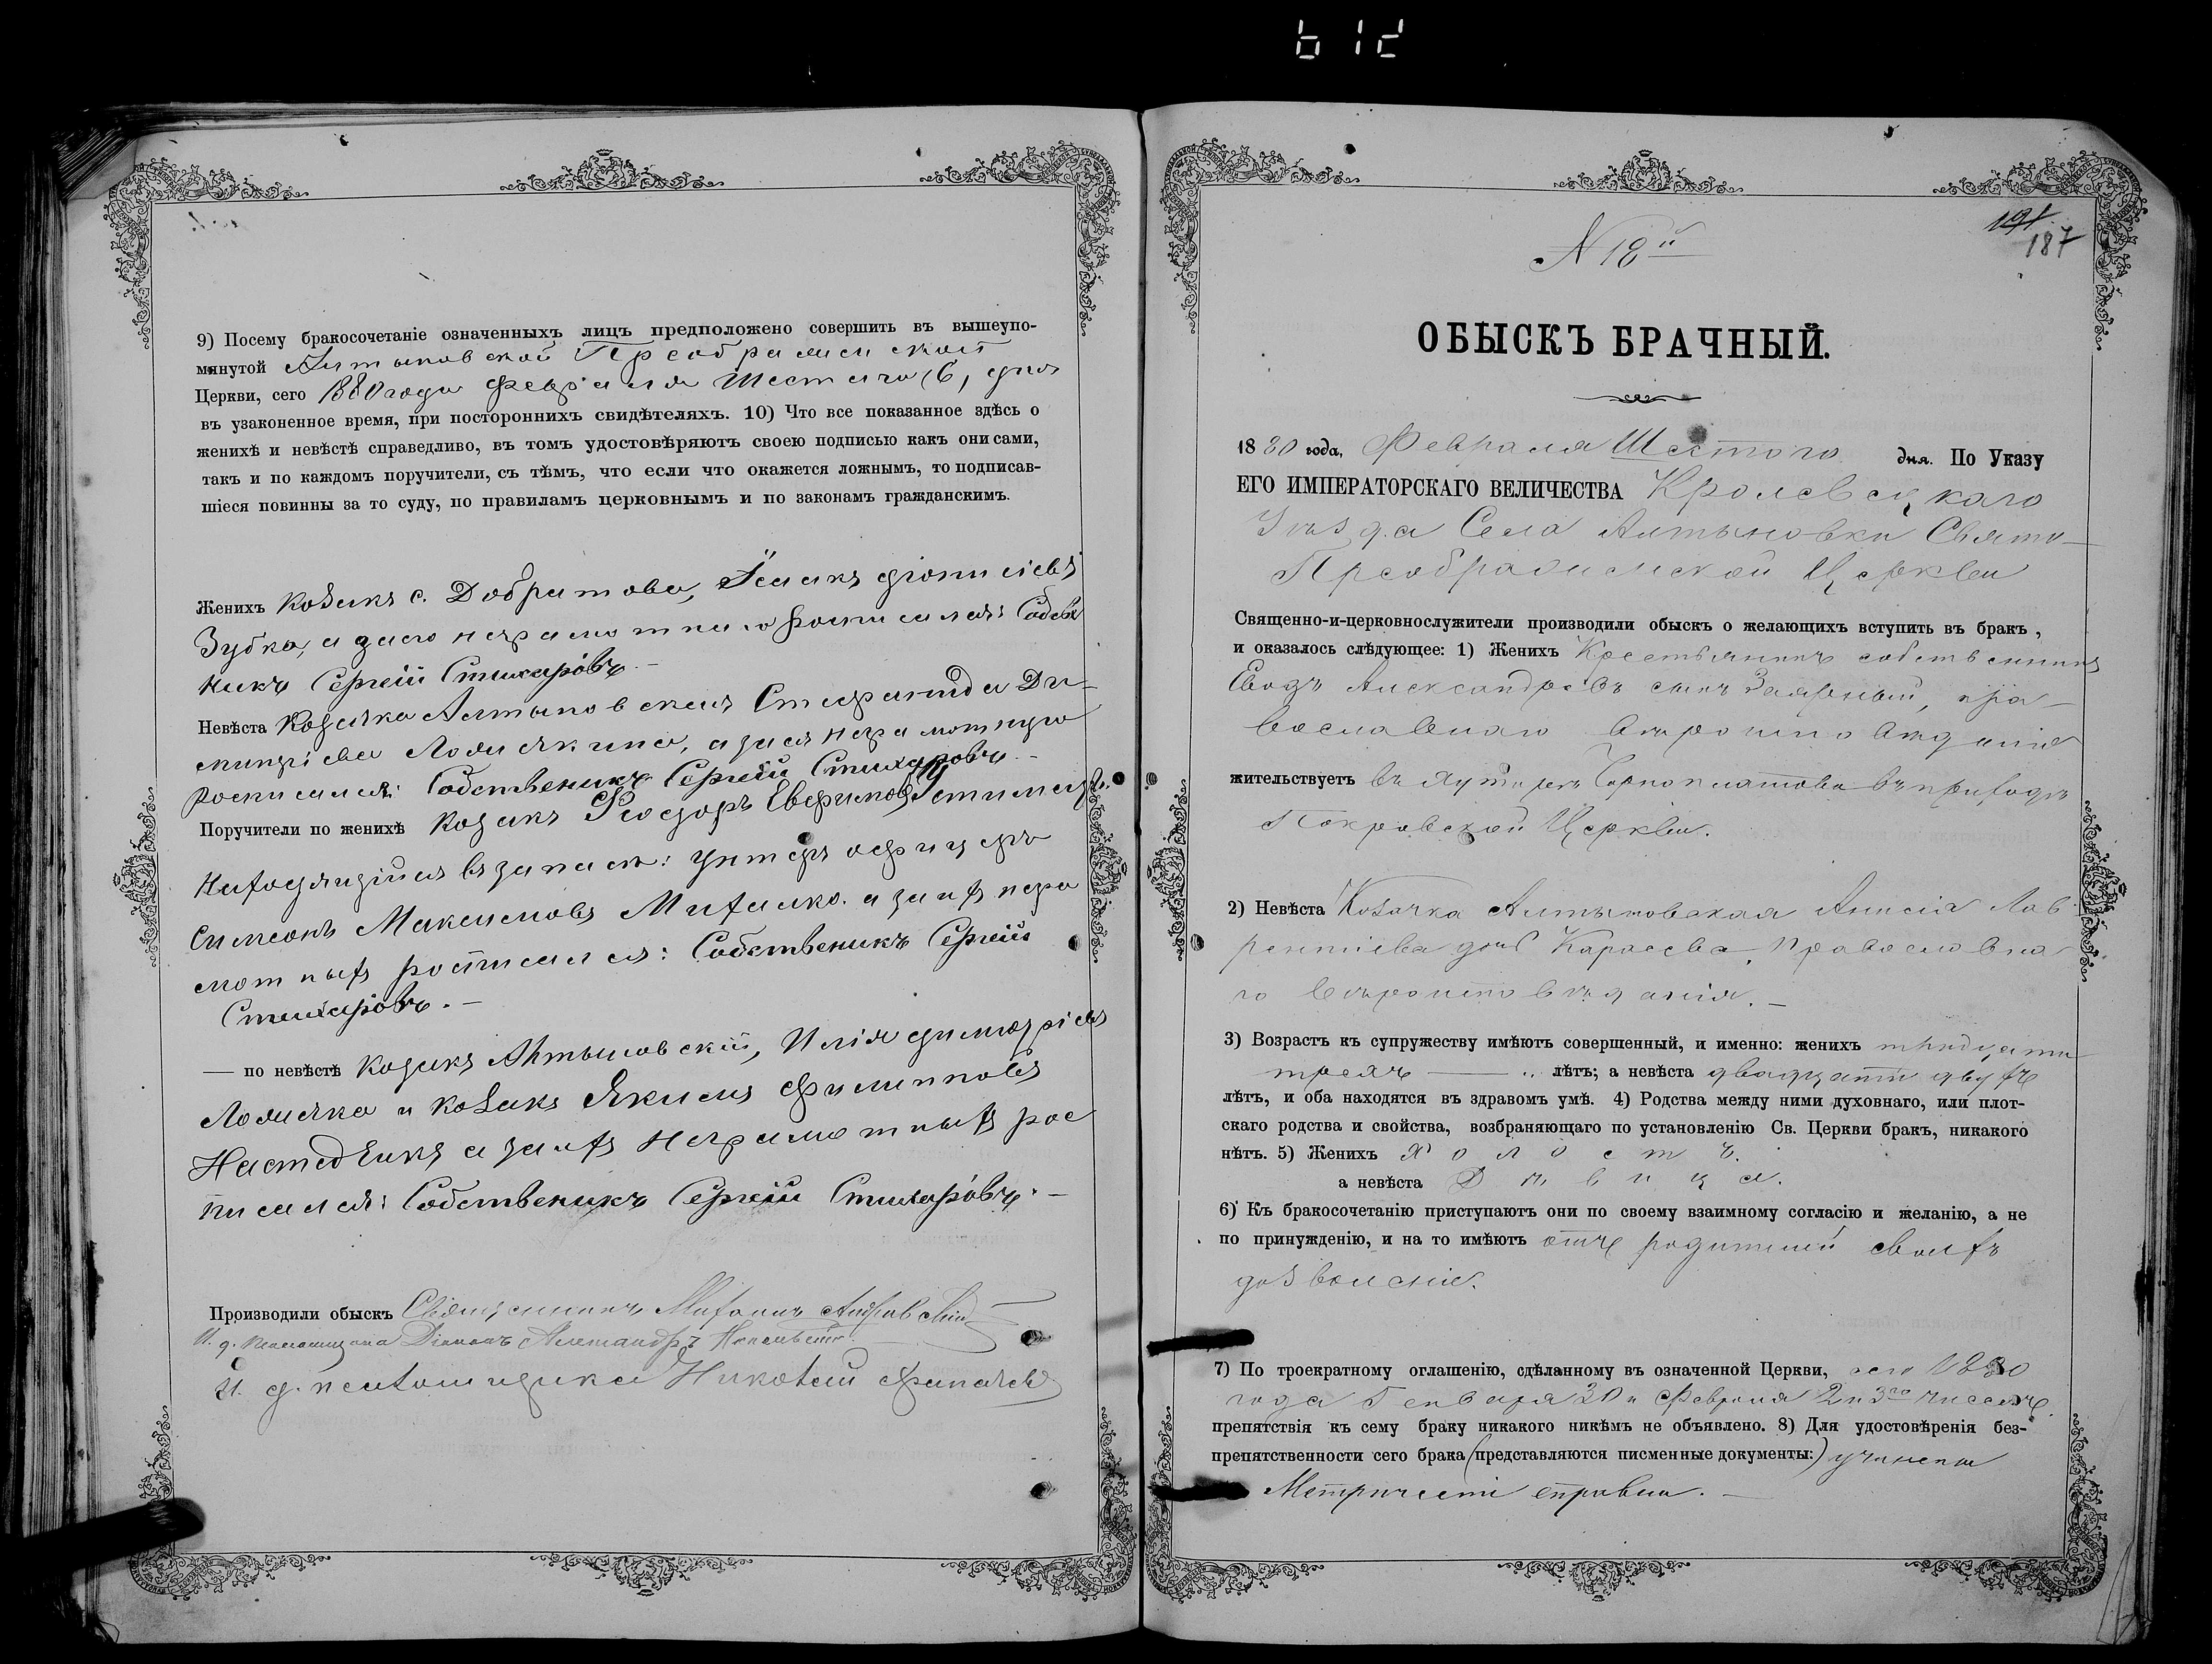 9) Посему бракосочетаніе означенныхъ лицъ предположено совершить въ вышеупо-
мянутой Алтыновской Преображенской
Церкви, сего 1880 года Февраля Шестаго (6, дня
въ узаконенное время, при постороннихъ свидѣтеляхъ. 10) Что все показанное здѣсь о
женихѣ и невѣстѣ справедливо, въ томъ удостовѣряютъ своею подписью какъ они сами,
такъ и по каждомъ поручители, съ тѣмъ, что если что окажется ложнымъ, то подписав-
шіеся повинны за то суду, по правиламъ церковнымъ и по законамъ гражданскимъ.
Женихъ Козакъ с. Добратова, Исаакъ діонисіевъ
Зубко, а за его неграмотнаго росписался: Собств
никъ Сергій Стихаровъ. —
Невѣста Козачка Алтыновская Стефанида Ди-
митріева, а за ея неграмотную
росписался: Собственикъ Сергій Стихаровъ. —
Поручители по женихѣ Козакъ Ѳеодоръ
Находящійся въ запасѣ: унтеръ офицеръ
Симеонъ Максимовъ Михалко. а за ихъ негра
мотныхъ росписался: Собственикъ Сергій
Стихаровъ. —
— по невѣстѣ Козакъ Алтыновскій, Илія димитріевъ
и козакъ Якимъ Филипповъ
а за ихъ неграмотныхъ рос
писался: Собственикъ Сергій Стихаровъ. —
Производили обыскъ Священникъ
И. д. псаломщика Діаконъ Александръ
И. д. псаломщика Николай
№ 18й
191
187
ОБЫСКЪ БРАЧНЫЙ.
1880 года, Февраля Шестого дня. По Указу
ЕГО ИМПЕРАТОРСКАГО ВЕЛИЧЕСТВА Кролевецкаго
Уѣзда Села Алтыновки Свято-
Преображенской Церкви
Священно-и-церковнослужители производили обыскъ о желающихъ вступить въ бракъ,
и оказалось слѣдующее: 1) Женихъ Крестьянинъ собственникъ
Александровъ сынъ Заярный, пра-
вославнаго вѣроисповѣданія
жительствуетъ въ хуторѣ Чорноплатова въ приходѣ
Покровской Церкви.
2) Невѣста Козачка Алтыновская Анисія Лав-
рентіева дочь Караева, Православна
го вѣроисповѣданія. —
3) Возрастъ къ супружеству имѣютъ совершенный, и именно: женихъ тридцати
трехъ — лѣтъ; а невѣста двадцати двухъ
лѣтъ, и оба находятся въ здравомъ умѣ. 4) Родства между ними духовнаго, или плот-
скаго родства и свойства, возбраняющаго по установленію Св. Церкви бракъ, никакого
нѣтъ. 5) Женихъ Холостъ.
а невѣста Дѣвица.
6) Къ бракосочетанію приступаютъ они по своему взаимному согласію и желанію, а не
по принужденію, и на то имѣютъ отъ родителей своихъ
дозволеніе.
7) По троекратному оглашенію, сдѣланному въ означенной Церкви, сего 1880
года Генваря 30 и Февраля 2 и 3го числъ
препятствія къ сему браку никакого никѣмъ не объявлено. 8) Для удостовѣренія без-
препятственности сего брака (представляются писменные документы:) учинены
Метрическіе справки. —